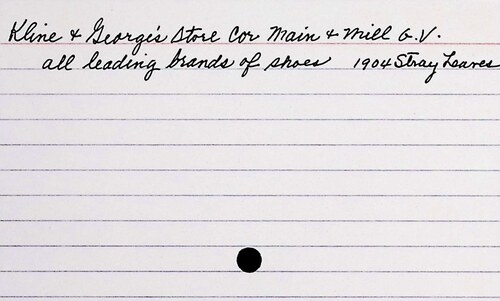 Kline & George's Store Cor Main & Mill G.V.
all leading brands of shoes 1904 Stray Leaves